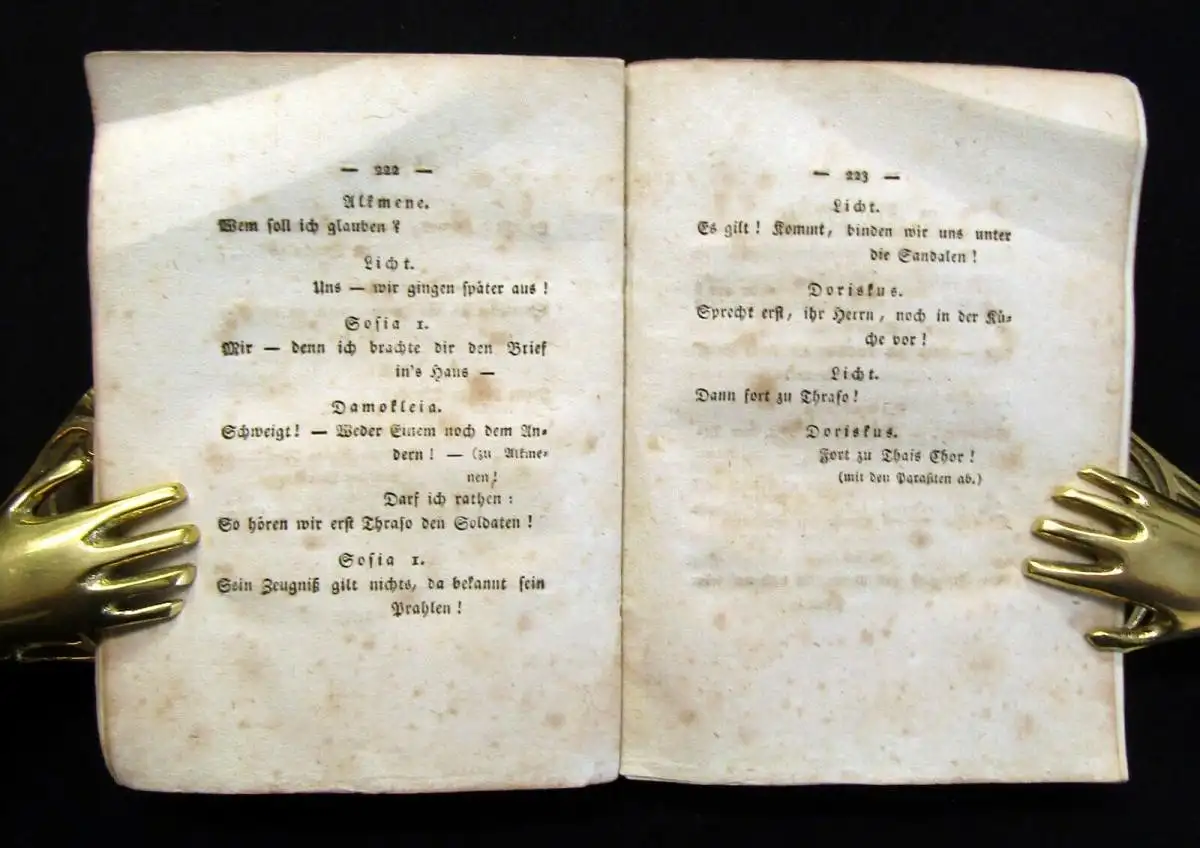 — 222 —
Alkmene.
Wem ſoll ich glauben?
Licht.
Uns — wir gingen ſpäter aus!
Soſia 1.
Mir — denn ich brachte dir den Brief
in's Haus —
Damokleia.
Schweigt! — Weder Einem noch dem An-
dern! — (zu Alkme-
nen)
Darf ich rathen:
So hören wir erſt Thraſo den Soldaten!
Soſia 1.
Sein Zeugniß gilt nichts, da bekannt ſein
Prahlen!
— 223 —
Licht.
Es gilt! Kommt, binden wir uns unter
die Sandalen!
Doriskus.
Sprecht erſt, ihr Herrn, noch in der Kü-
che vor!
Licht.
Dann fort zu Thraſo!
Doriskus.
Fort zu Thais Chor!
(mit den Paraſiten ab.)